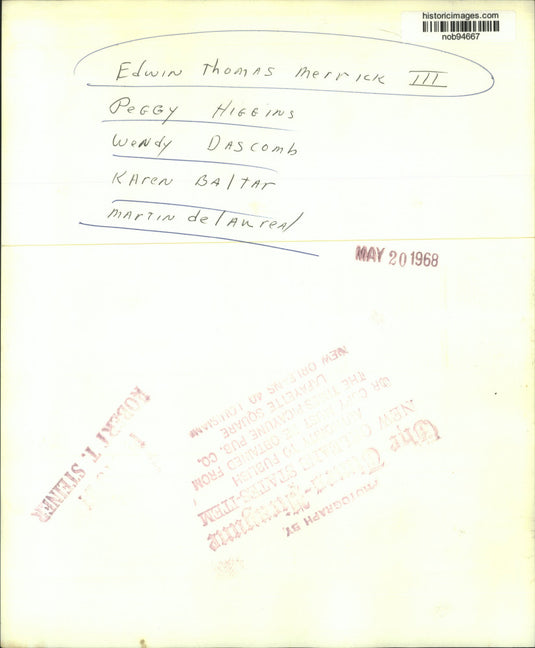 historicimages.com
nob94667
Edwin Thomas Merrick III
Peggy Higgins
Wendy Dascomb
Karen Baltar
Martin delaureal
MAY 20 1968
ROBERT T. STEINER
PHOTOGRAPH BY
The Times-Picayune
NEW ORLEANS STATES-ITEM
TO PUBLISH
OR COPY MUST BE OBTAINED FROM
THE TIMES-PICAYUNE PUB. CO.
LAFAYETTE SQUARE
NEW ORLEANS 40, LOUISIANA